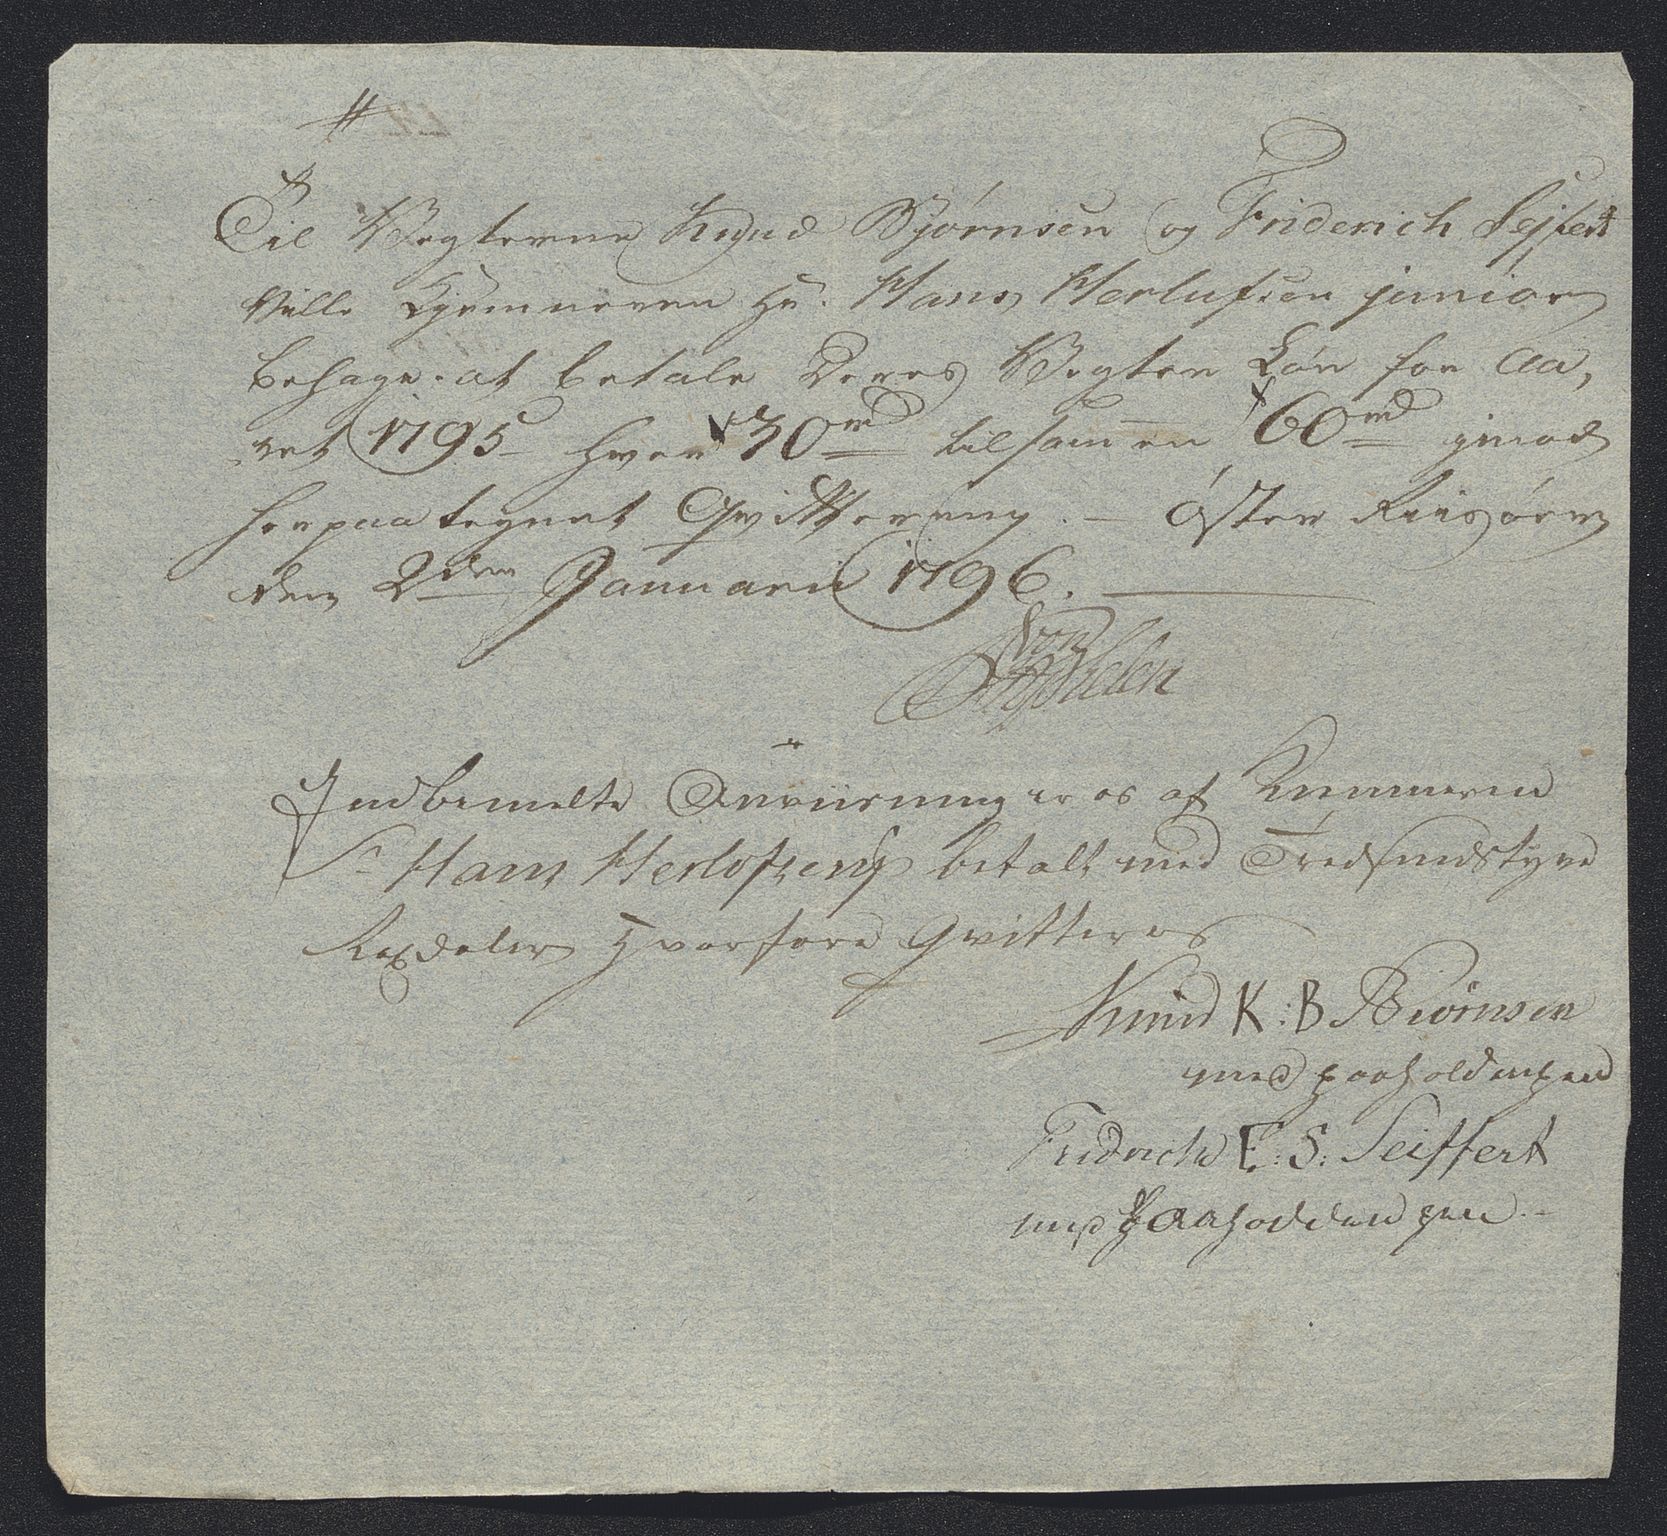 Til Vegterne Knud Bjørnsen og Friderich Sejfert
Ville Kjemneren Hr. Hans Herlufsen junior
behage at betale Deres Vegter Løn for Aa,
ret 1795 hver 30 rd tilsammen 60 rd imod
herpaa tegnet Qvittering. - Öster Riisøer
den 2den Januarii 1796.
von
Indbemelte Anviisning er os af Kemneren
Sr Hans Herlofsen betalt med Tredsindstyve
Rixdaler Hvorfore Qvitteres
Knud K: B Biørnsen
med paaholden pen
Fridrich F: S: Seiffert
med paaholden pen